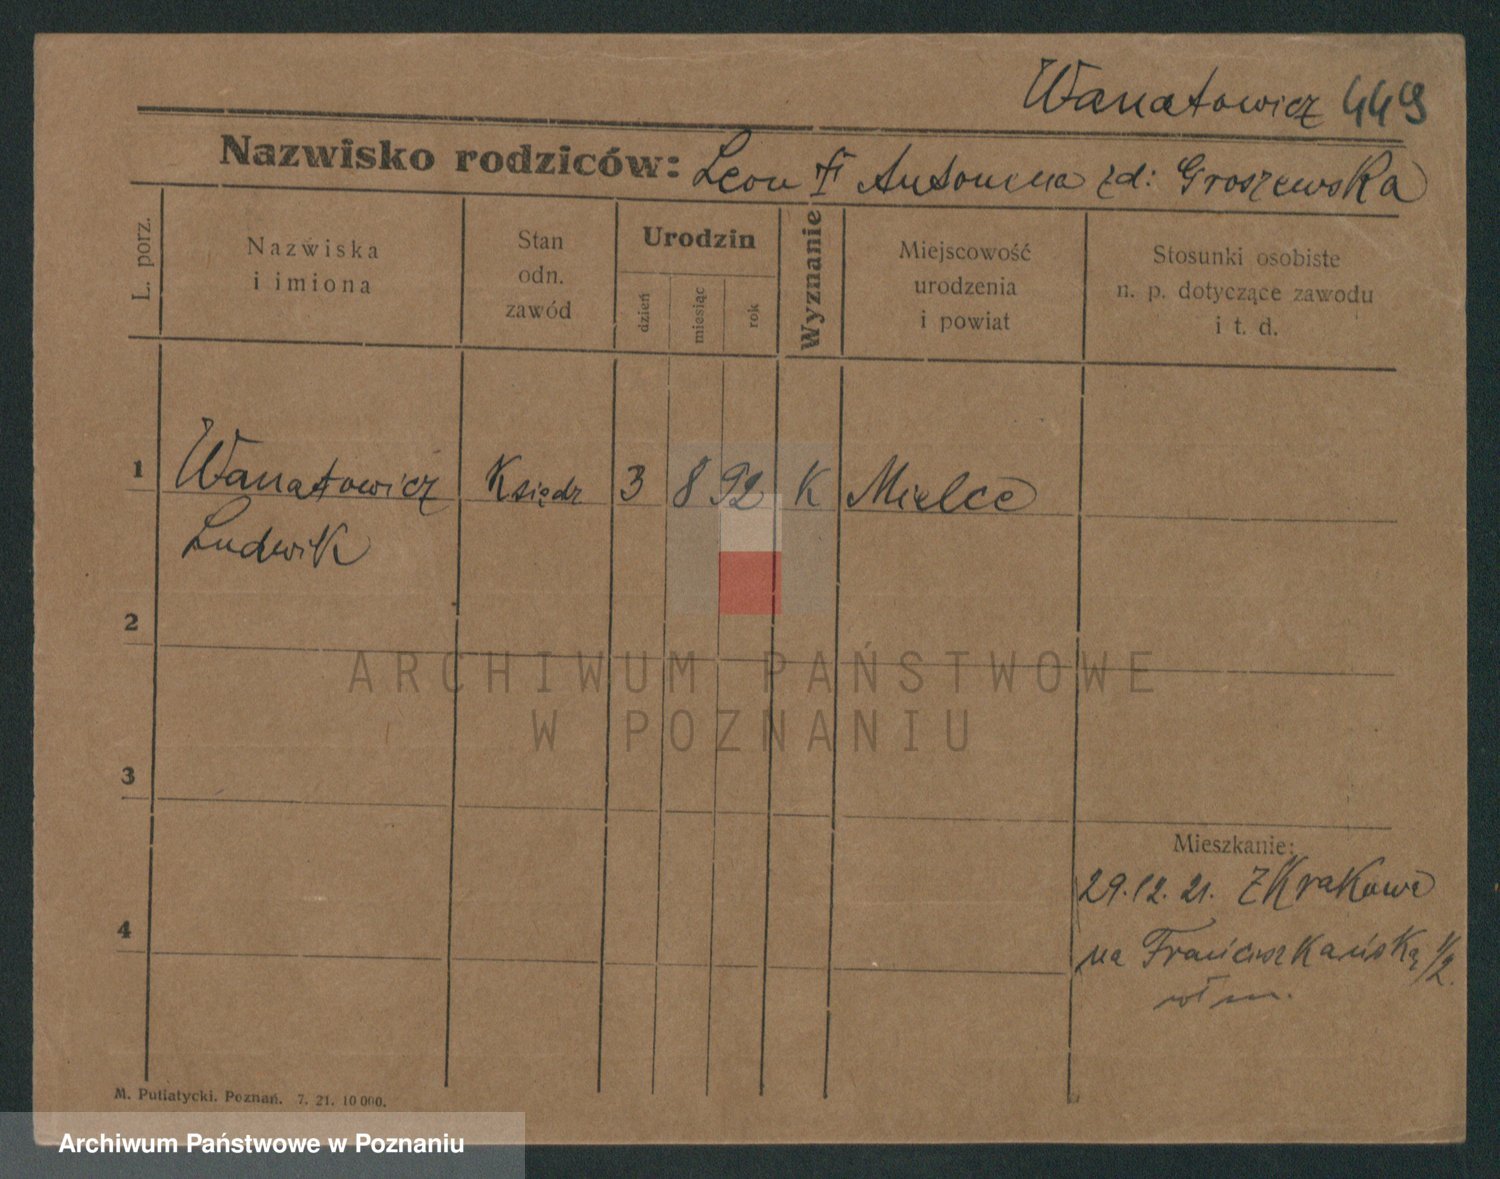 Wanatowicz 449
Nazwisko rodziców: Leon Antonina zd: Groszewska
L. porz.
Nazwiska
i imiona
Stan
odn.
zawód
Urodzin
dzień
miesiąc
rok
Wyznanie
Miejscowość
urodzenia
i powiat
Stosunki osobiste
n. p. dotyczące zawodu
i t. d.
1 Wanatowicz Ksiądz 3 8 92 K Mielce
Ludwik
2
ARCHIWUM PAŃSTWOWE
W POZNANIU
3
Mieszkanie:
29.12.21. z Krakowa
4
na Franciszkańską 1/2.
M. Putiatycki. Poznań. 7. 21. 10 000.
Archiwum Państwowe w Poznaniu